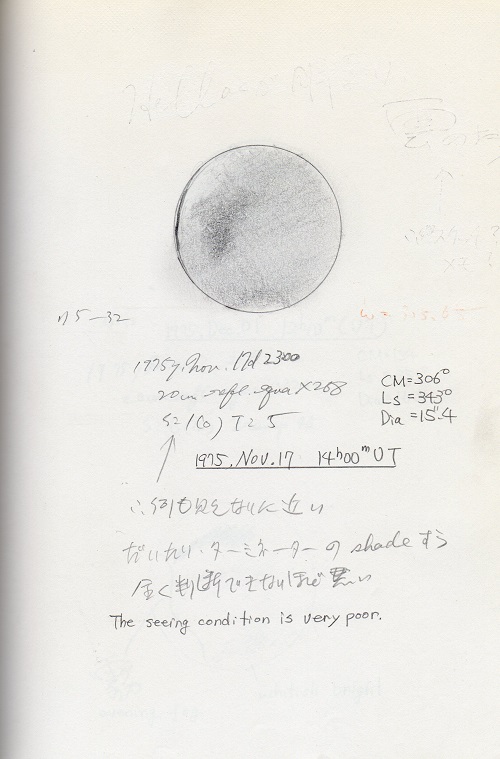 75-32
1975y. Nov. 17d 2300
20cm refl. equa ×268
CM=306°
Ls =343°
Dia =15".4
S=1(0) T=5
1975. Nov. 17 14h00m UT
∴ 何も見えないに近い
だいたい・ターミネーターの shade すら
全く判断できないほど悪い
The seeing condition is very poor.